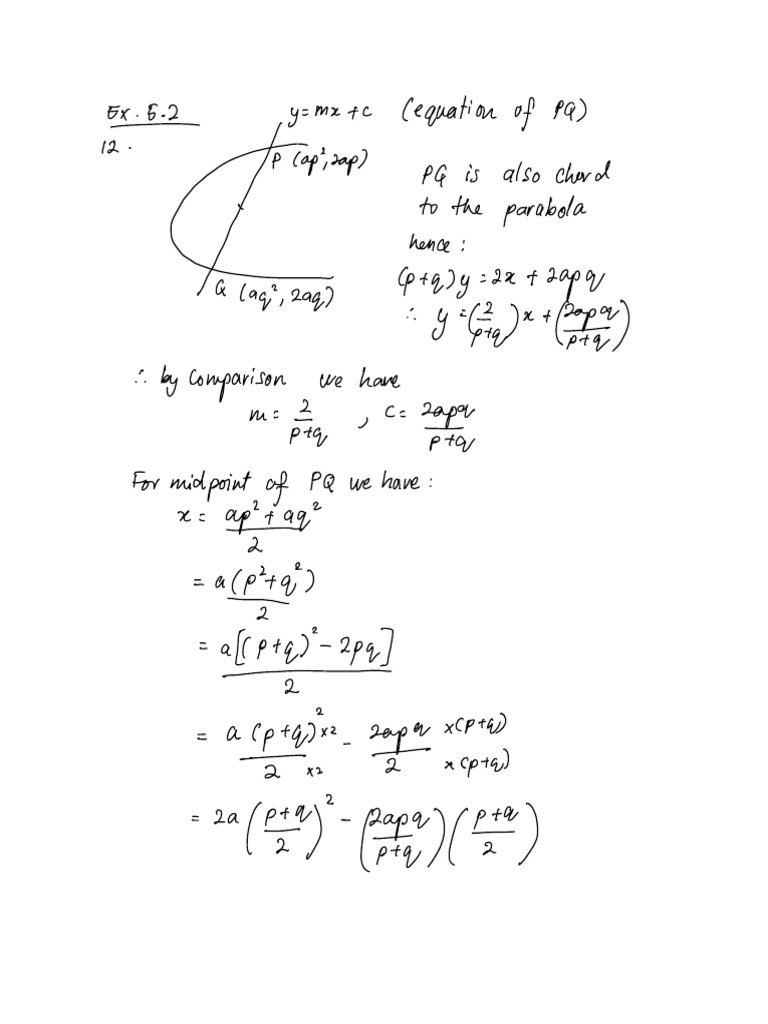 Ex. 5.2
12.
y = mx + c (equation of PQ)
P (ap², 2ap)
Q (aq², 2aq)
PQ is also chord
to the parabola
hence:
(p+q)y = 2x + 2apq
∴ y = (2/(p+q))x + (2apq/(p+q))
∴ by comparison we have
m = 2/(p+q) , c = 2apq/(p+q)
For midpoint of PQ we have:
x = (ap² + aq²)/2
= a(p² + q²)/2
= a[(p+q)² - 2pq]/2
= a(p+q)² ×2/2 ×2 - 2apq ×(p+q)/2 ×(p+q)
= 2a((p+q)/2)² - (2apq/(p+q))((p+q)/2)